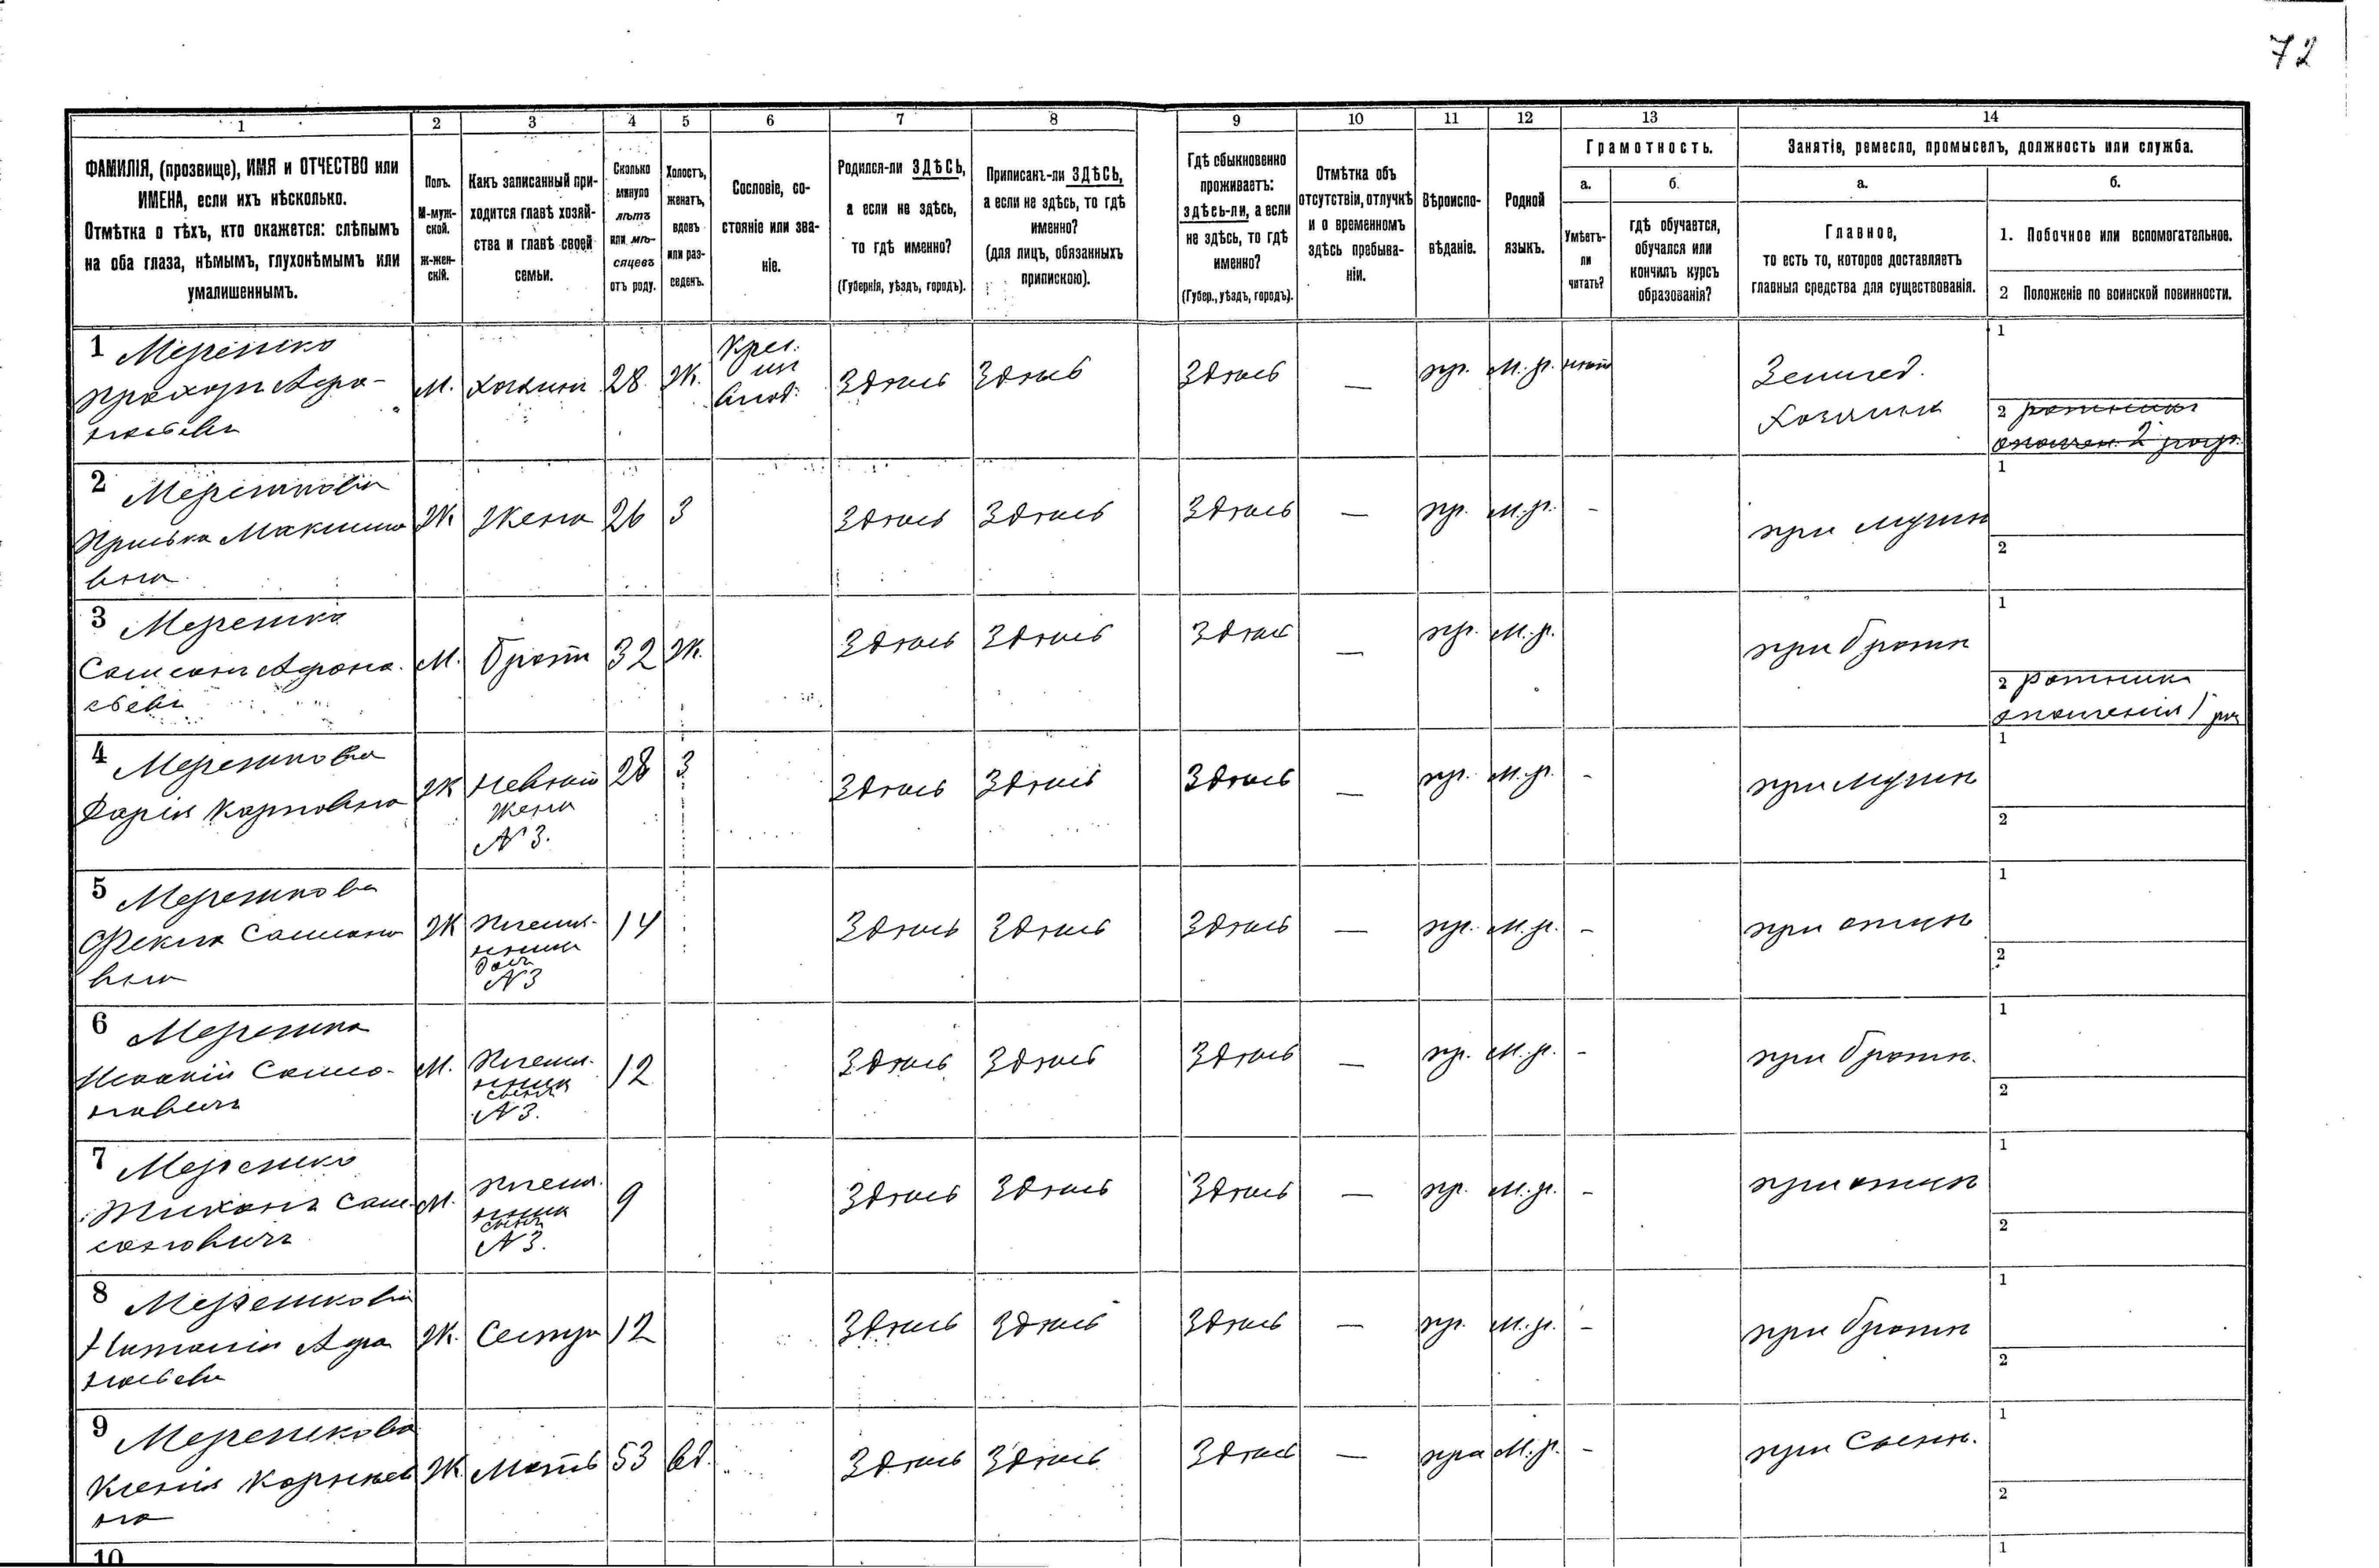 72
1 2 3 4 5 6 7 8 9 10 11 12 13 14
ФАМИЛІЯ, (прозвище), ИМЯ и ОТЧЕСТВО или
ИМЕНА, если ихъ нѣсколько.
Отмѣтка о тѣхъ, кто окажется: слѣпымъ
на оба глаза, нѣмымъ, глухонѣмымъ или
умалишеннымъ.
Полъ.
М-муж-
ской.
ж-жен-
скій.
Какъ записанный при-
ходится главѣ хозяй-
ства и главѣ своей
семьи.
Сколько
минуло
лѣтъ
или мѣ-
сяцевъ
отъ роду.
Холостъ,
женатъ,
вдовъ
или раз-
веденъ.
Сословіе, со-
стояніе или зва-
ніе.
Родился-ли ЗДѢСЬ,
а если не здѣсь,
то гдѣ именно?
(Губернія, уѣздъ, городъ).
Приписанъ-ли ЗДѢСЬ,
а если не здѣсь, то гдѣ
именно?
(для лицъ, обязанныхъ
припискою).
Гдѣ обыкновенно
проживаетъ:
здѣсь-ли, а если
не здѣсь, то гдѣ
именно?
(Губер., уѣздъ, городъ).
Отмѣтка объ
отсутствіи, отлучкѣ
и о временномъ
здѣсь пребыва-
ніи.
Вѣроиспо-
вѣданіе.
Родной
языкъ.
Грамотность.
а. б.
Умѣетъ-
ли
читать?
гдѣ обучается,
обучался или
кончилъ курсъ
образованія?
Занятіе, ремесло, промыселъ, должность или служба.
а. б.
Главное,
то есть то, которое доставляетъ
главныя средства для существованія.
1. Побочное или вспомогательное.
2 Положеніе по воинской повинности.
1 Мерешко
Прохоръ Афа-
насьевъ
М. хозяин 28 Ж.
Крес.
из
влад.
Здѣсь Здѣсь Здѣсь — пр. М. р. нѣт
Землед.
Хозяинъ
1
2 ратникъ
ополчен. 2 разр.
2 Мерешкова
Приська Максимо
вна
Ж Жена 26 З Здѣсь Здѣсь Здѣсь — пр. м. р. - при мужѣ
1
2
3 Мерешко
Самсонъ Афана-
сьевъ
М. Братъ 32 Ж. Здѣсь Здѣсь Здѣсь — пр. М. р. при братѣ
1
2 ратникъ
ополченія 1 раз
4 Мерешкова
Дарія Карповна
Ж
Невѣст
Жена
№ 3.
28 З Здѣсь Здѣсь Здѣсь — пр. М. р. - при мужѣ
1
2
5 Мерешкова
Фекла Самсоно
вна
Ж
Племян-
ница
доч
№ 3
14 Здѣсь Здѣсь Здѣсь — пр. М. р. - при отцѣ
1
2
6 Мерешко
Самсо-
новичъ
М.
Племян-
никъ
сынъ
№ 3.
12 Здѣсь Здѣсь Здѣсь — пр. М. р. - при братѣ.
1
2
7 Мерешко
Тихонъ Сам-
соновичъ
М.
Племян.
никъ
сынъ
№ 3.
9 Здѣсь Здѣсь Здѣсь — пр. М. р. - при отцѣ
1
2
8 Мерешкова
Наталія Афа
насьева
Ж. Сестра 12 Здѣсь Здѣсь Здѣсь — пр. М. р. - при братѣ
1
2
9 Мерешкова
Ксенія Корнѣев
на
Ж. Мать 53 вд. Здѣсь Здѣсь Здѣсь — пра М. р. - при Сынѣ.
1
2
10
1